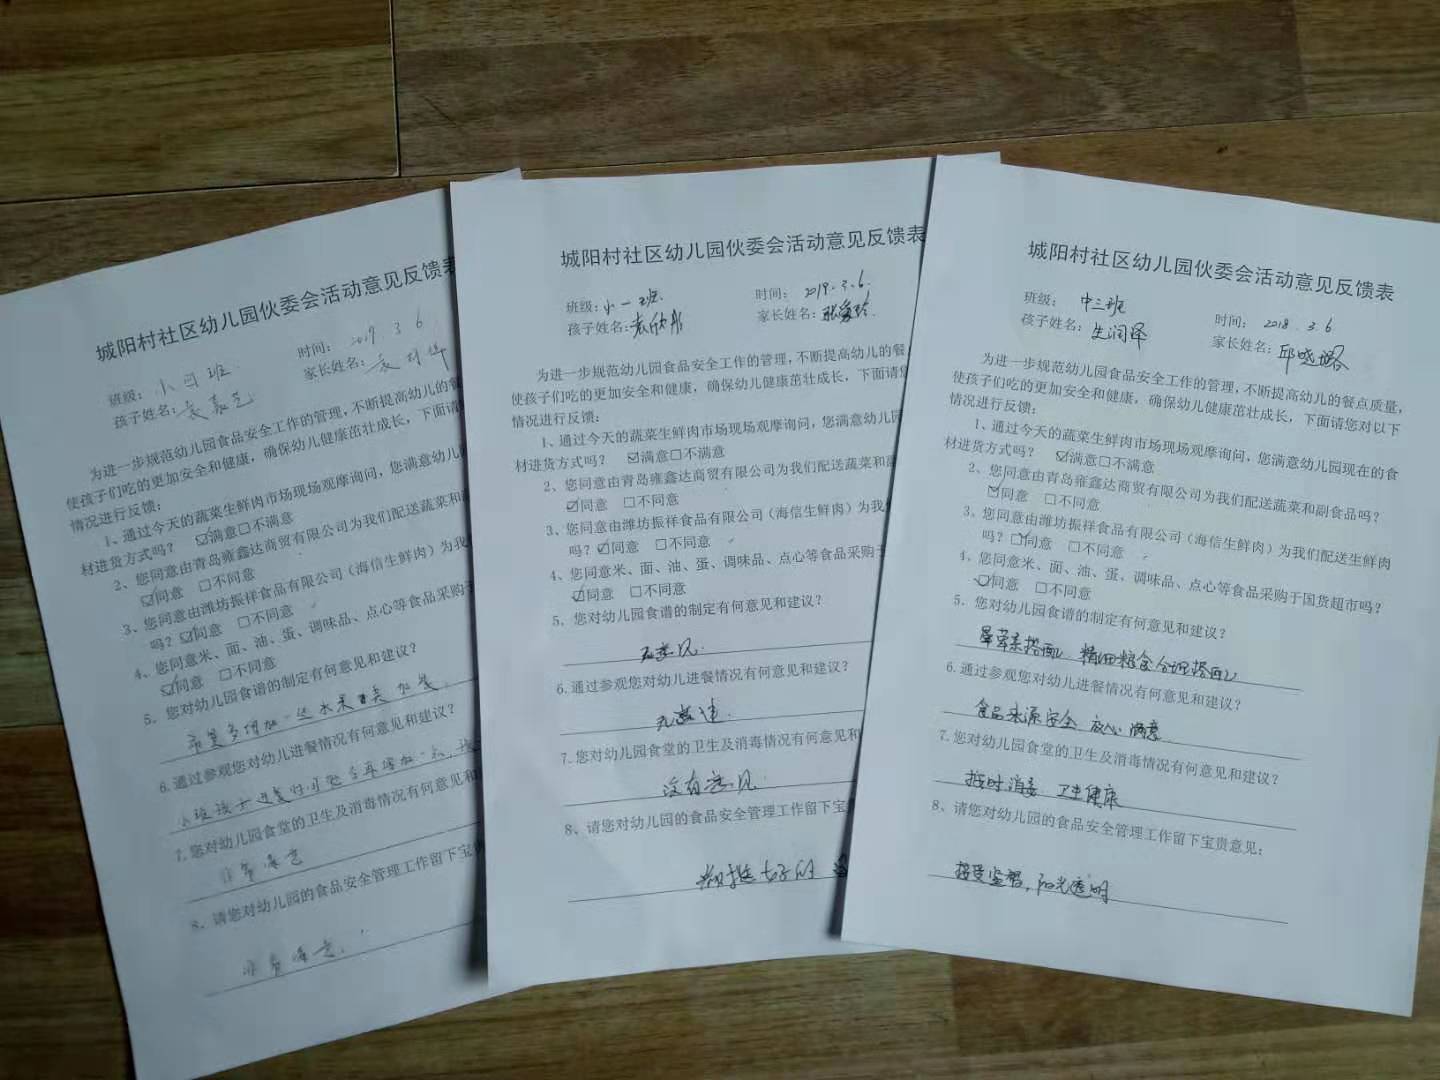 城阳村社区幼儿园伙委会活动意见反馈表
班级： 小四班
时间： 2019 3 6
孩子姓名：袁嘉艺
家长姓名：
为进一步规范幼儿园食品安全工作的管理，不断提高幼儿的餐
使孩子们吃的更加安全和健康，确保幼儿健康茁壮成长，下面请
情况进行反馈：
1、通过今天的蔬菜生鲜肉市场现场观摩询问，您满意幼儿
材进货方式吗？ ☑满意□不满意
2、您同意由青岛雍鑫达商贸有限公司为我们配送蔬菜和
☑同意 □不同意
3、您同意由潍坊振祥食品有限公司（海信生鲜肉）为我
吗？☑同意 □不同意
4、您同意米、面、油、蛋、调味品、点心等食品采购于
☑同意 □不同意
5、您对幼儿园食谱的制定有何意见和建议？
希望多增加一些水果
6.通过参观您对幼儿进餐情况有何意见和建议？
小班孩子进餐
7.您对幼儿园食堂的卫生及消毒情况有何意见和
非常满意
8、请您对幼儿园的食品安全管理工作留下宝
非常满意。
城阳村社区幼儿园伙委会活动意见反馈表
班级：小一班.
时间： 2019.3.6.
孩子姓名：袁欣彤
家长姓名：
为进一步规范幼儿园食品安全工作的管理，不断提高幼儿的餐
使孩子们吃的更加安全和健康，确保幼儿健康茁壮成长，下面请
情况进行反馈：
1、通过今天的蔬菜生鲜肉市场现场观摩询问，您满意幼儿园
材进货方式吗？ ☑满意□不满意
2、您同意由青岛雍鑫达商贸有限公司为我们配送蔬菜和副
☑同意 □不同意
3、您同意由潍坊振祥食品有限公司（海信生鲜肉）为我
吗？☑同意 □不同意
4、您同意米、面、油、蛋、调味品、点心等食品采购于
☑同意 □不同意
5、您对幼儿园食谱的制定有何意见和建议？
无意见.
6.通过参观您对幼儿进餐情况有何意见和建议？
无建议.
7.您对幼儿园食堂的卫生及消毒情况有何意见和
没有意见.
8、请您对幼儿园的食品安全管理工作留下宝
挺好的
城阳村社区幼儿园伙委会活动意见反馈表
班级： 中三班
时间： 2018.3.6
孩子姓名：生润泽
家长姓名：邱晓璐
为进一步规范幼儿园食品安全工作的管理，不断提高幼儿的餐点质量，
使孩子们吃的更加安全和健康，确保幼儿健康茁壮成长，下面请您对以下
情况进行反馈：
1、通过今天的蔬菜生鲜肉市场现场观摩询问，您满意幼儿园现在的食
材进货方式吗？ ☑满意□不满意
2、您同意由青岛雍鑫达商贸有限公司为我们配送蔬菜和副食品吗？
☑同意 □不同意
3、您同意由潍坊振祥食品有限公司（海信生鲜肉）为我们配送生鲜肉
吗？☑同意 □不同意
4、您同意米、面、油、蛋、调味品、点心等食品采购于国货超市吗？
☑同意 □不同意
5、您对幼儿园食谱的制定有何意见和建议？
荤素搭配 精细粮食合理搭配
6.通过参观您对幼儿进餐情况有何意见和建议？
食品来源安全 放心 满意
7.您对幼儿园食堂的卫生及消毒情况有何意见和建议？
按时消毒 卫生健康
8、请您对幼儿园的食品安全管理工作留下宝贵意见：
接受监督，阳光透明